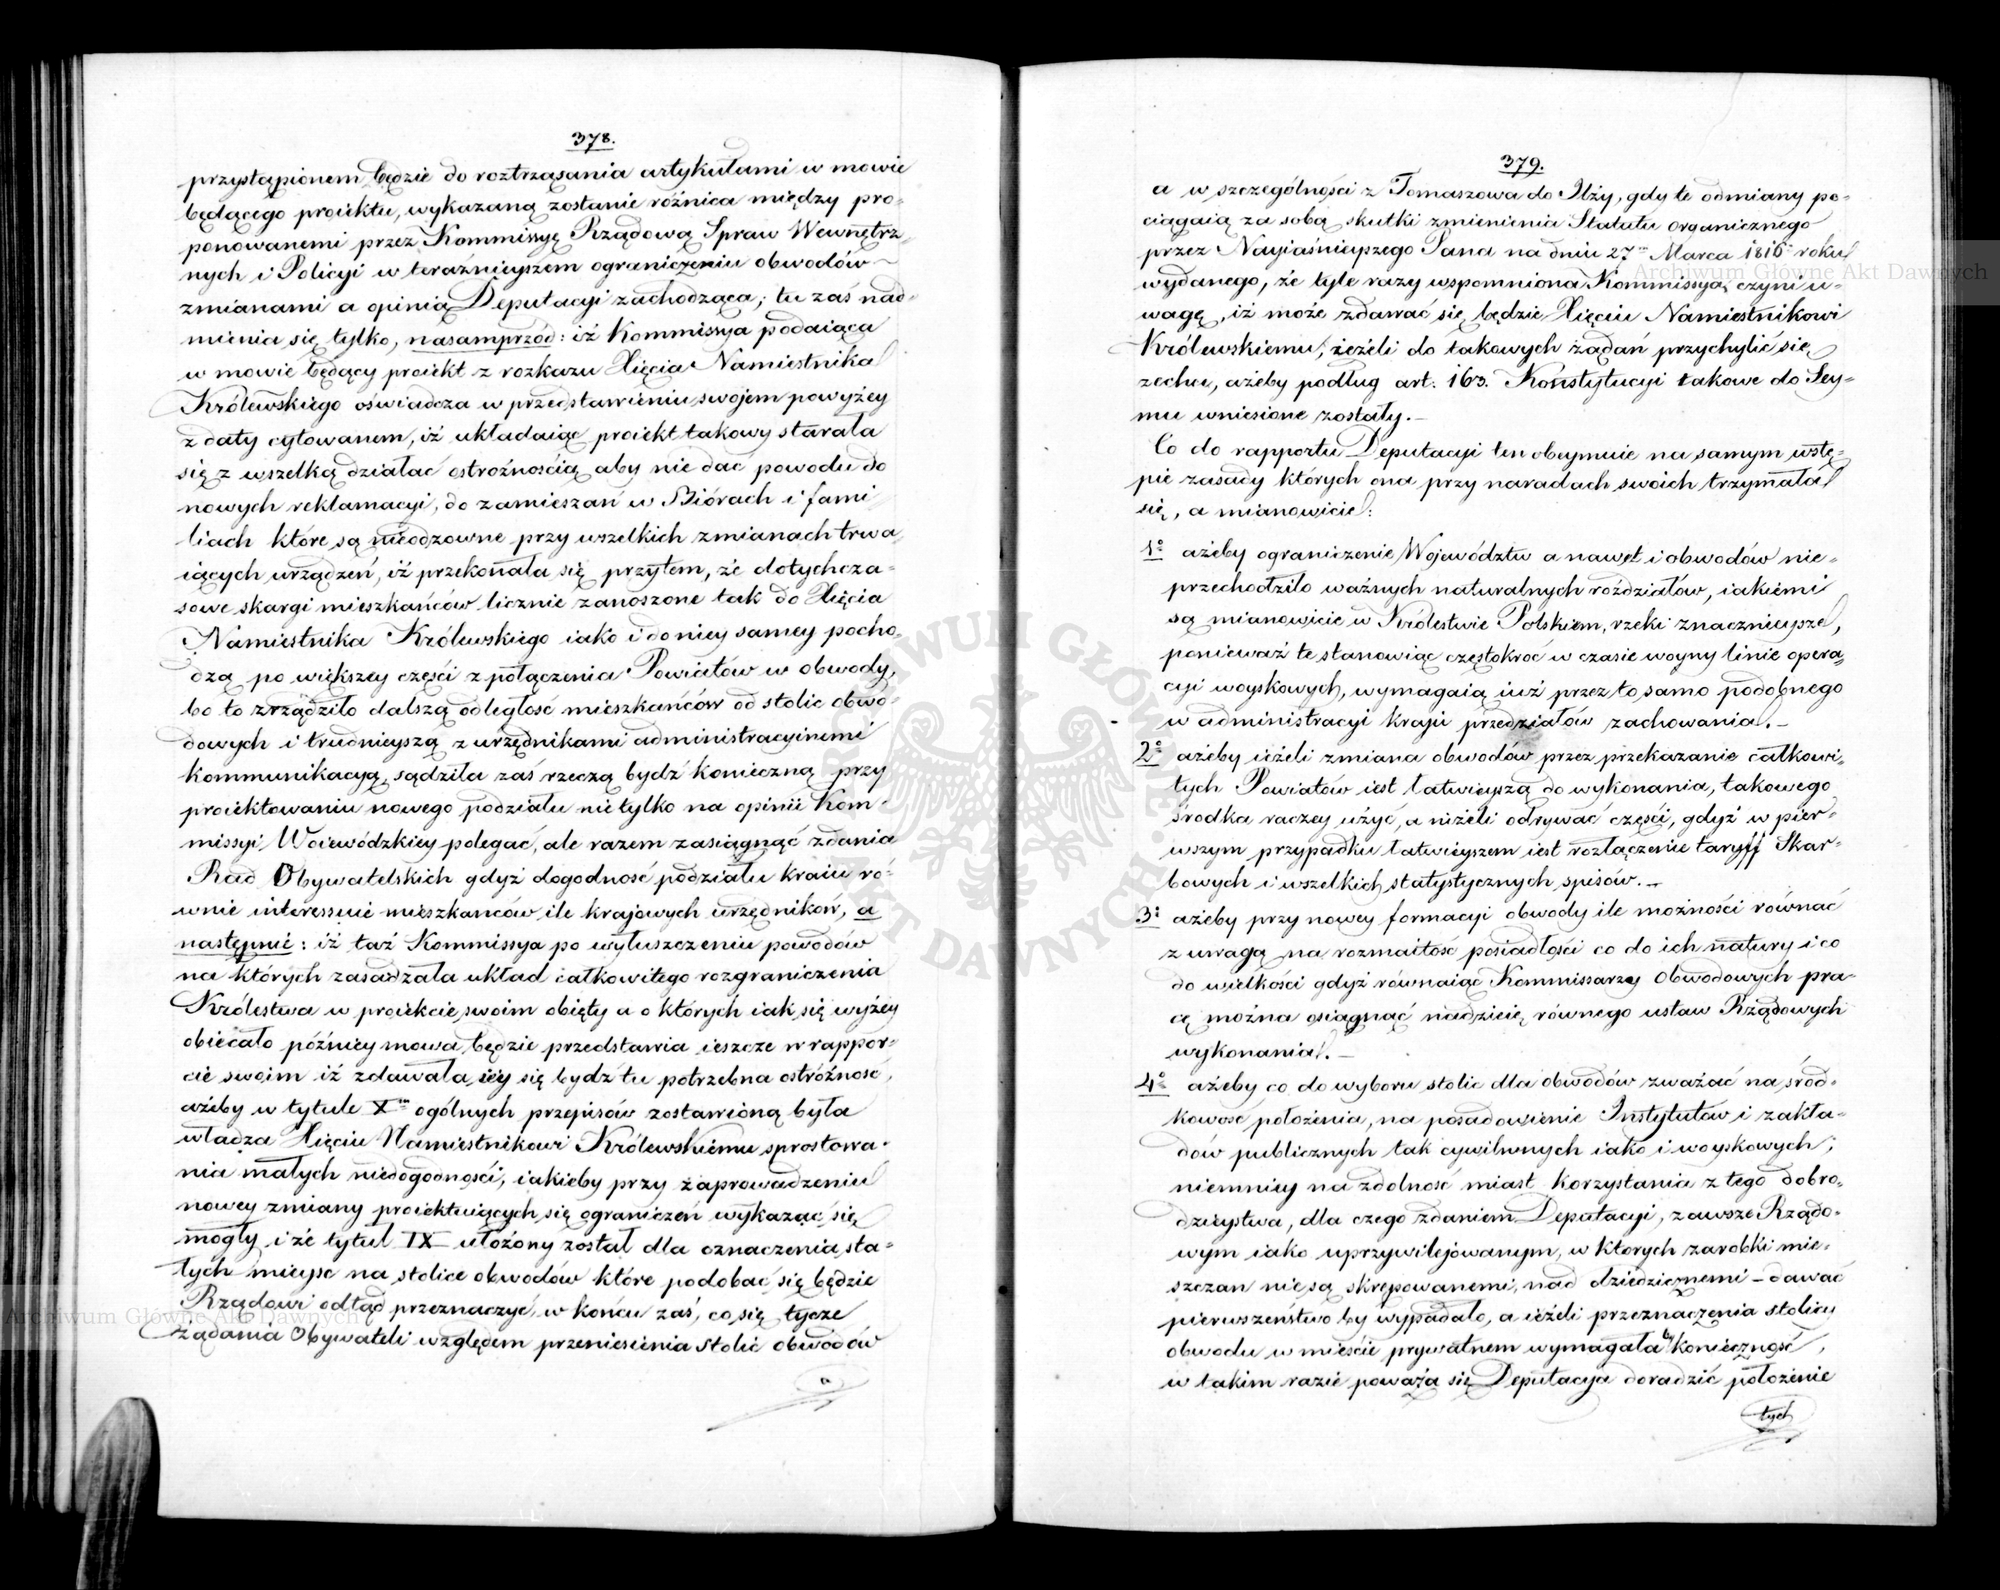 378.
przystąpionem będzie do roztrząsania artykułami w mowie
będącego proiektu, wykazaną zostanie różnica między pro-
ponowanemi przez Kommissyę Rządową Spraw Wewnętrz-
nych i Policyi w teraźnieyszem ograniczeniu obwodów
zmianami a opinią Deputacyi zachodząca; tu zaś nad-
mienia się tylko, nasamprzód: iż Kommissya podaiąca
w mowie będący proiekt z rozkazu Xięcia Namiestnika
Królewskiego oświadcza w przedstawieniu swojem powyżey
z daty cytowanem, iż układaiąc proiekt takowy starała
się z wszelką działać ostrożnością aby nie dać powodu do
nowych reklamacyi, do zamieszań w Biórach i fami
liach które są nieodzowne przy wszelkich zmianach trwa-
iących urządzeń, iż przekonała się przytem, że dotychcza-
sowe skargi mieszkańców licznie zanoszone tak do Xięcia
Namiestnika Królewskiego iako i do niey samey pocho-
dzą po większey części z połączenia Powiatów w obwody,
bo to zrządziło dalszą odległość mieszkańców od stolic obwo-
dowych i trudnieyszą z urzędnikami administracyinemi
kommunikacyą, sądziła zaś rzeczą bydź konieczną przy
proiektowaniu nowego podziału nie tylko na opinii Kom-
missyi Woiewódzkiey polegać, ale razem zasiągnąć zdania
Rad Obywatelskich gdyż dogodność podziału kraiu ro-
wnie interessuie mieszkańców, ile krajowych urzędników, a
następnie: iż taż Kommissya po wyłuszczeniu powodów
na których zasadzała układ całkowitego rozgraniczenia
Królestwa w proiekcie swoim obięty a o których iak się wyżey
obiecało późniey mowa będzie przedstawia ieszcze w rappor-
cie swoim iż zdawała iey się bydź tu potrzebna ostrożność,
ażeby w tytule X<sup>m</sup> ogólnych przepisów zostawioną była
władza Xięciu Namiestnikowi Królewskiemu sprostowa-
nia małych niedogodności, iakieby przy zaprowadzeniu
nowey zmiany proiektuiących się ograniczeń wykazać się
mogły i że tytuł IX ułożony został dla oznaczenia sta-
łych mieysc na stolice obwodów które podobać się będzie
Rządowi odtąd przeznaczyć, w końcu zaś, co się tycze
żądania Obywateli względem przeniesienia stolic obwodów
a
379.
a w szczególności z Tomaszowa do Iłży, gdy te odmiany po-
ciągaią za sobą skutki zmienienia Statutu organicznego
przez Nayiaśnieyszego Pana na dniu 27<sup>m</sup> Marca 1816 roku
wydanego, że tyle razy wspomniona Kommissya, czyni u-
wagę, iż może zdawać się będzie Xięciu Namiestnikowi
Królewskiemu, jeżeli do takowych żądań przychylić się
zechce, ażeby podług art: 163. Konstytucyi takowe do Sey-
mu wniesione zostały.—
Co do rapportu Deputacyi ten obeymuie na samym wstę-
pie zasady których ona przy naradach swoich trzymała
się, a mianowicie:
1° ażeby ograniczenie Województw a nawet i obwodów nie-
przechodziło ważnych naturalnych rozdziałów, iakiemi
są mianowicie w Królestwie Polskiem, rzeki znacznieysze,
ponieważ te stanowiąc częstokroć w czasie woyny linie opera-
cyi woyskowych, wymagaią iuż przez to samo podobnego
w administracyi kraju przedziałów zachowania.—
2° ażeby ieżeli zmiana obwodów przez przekazanie całkowi-
tych Powiatów iest łatwieyszą do wykonania, takowego
środka raczey użyć, a niżeli odrywać części, gdyż w pier-
wszym przypadku łatwieyszem iest rozłączenie taryff Skar-
bowych i wszelkich statystycznych spisów.—
3° ażeby przy nowey formacyi obwody ile możności równać
z uwagą na rozmaitość posiadłości co do ich natury i co
do wielkości gdyż równaiąc Kommissarzy Obwodowych pra-
cę można osiągnąć nadzieię równego ustaw Rządowych
wykonania.—
4° ażeby co do wyboru stolic dla obwodów zważać na środ-
kowość położenia, na posadowienie Instytutów i zakła-
dów publicznych tak cywilnych iako i woyskowych;
niemniey na zdolność miast korzystania z tego dobro-
dzieystwa, dla czego zdaniem Deputacyi, zawsze Rządo-
wym iako uprzywilejowanym, w których zarobki mie-
szczan nie są skrępowanemi, nad dziedzicznemi — dawać
pierwszeństwo by wypadało, a ieżeli przeznaczenia stolicy
obwodu w mieście prywatnem wymagała by konieczność,
w takim razie poważa się Deputacya doradzić położenie
tych
Archiwum Główne Akt Dawnych
Archiwum Główne Akt Dawnych
ARCHIWUM GŁÓWNE AKT DAWNYCH.